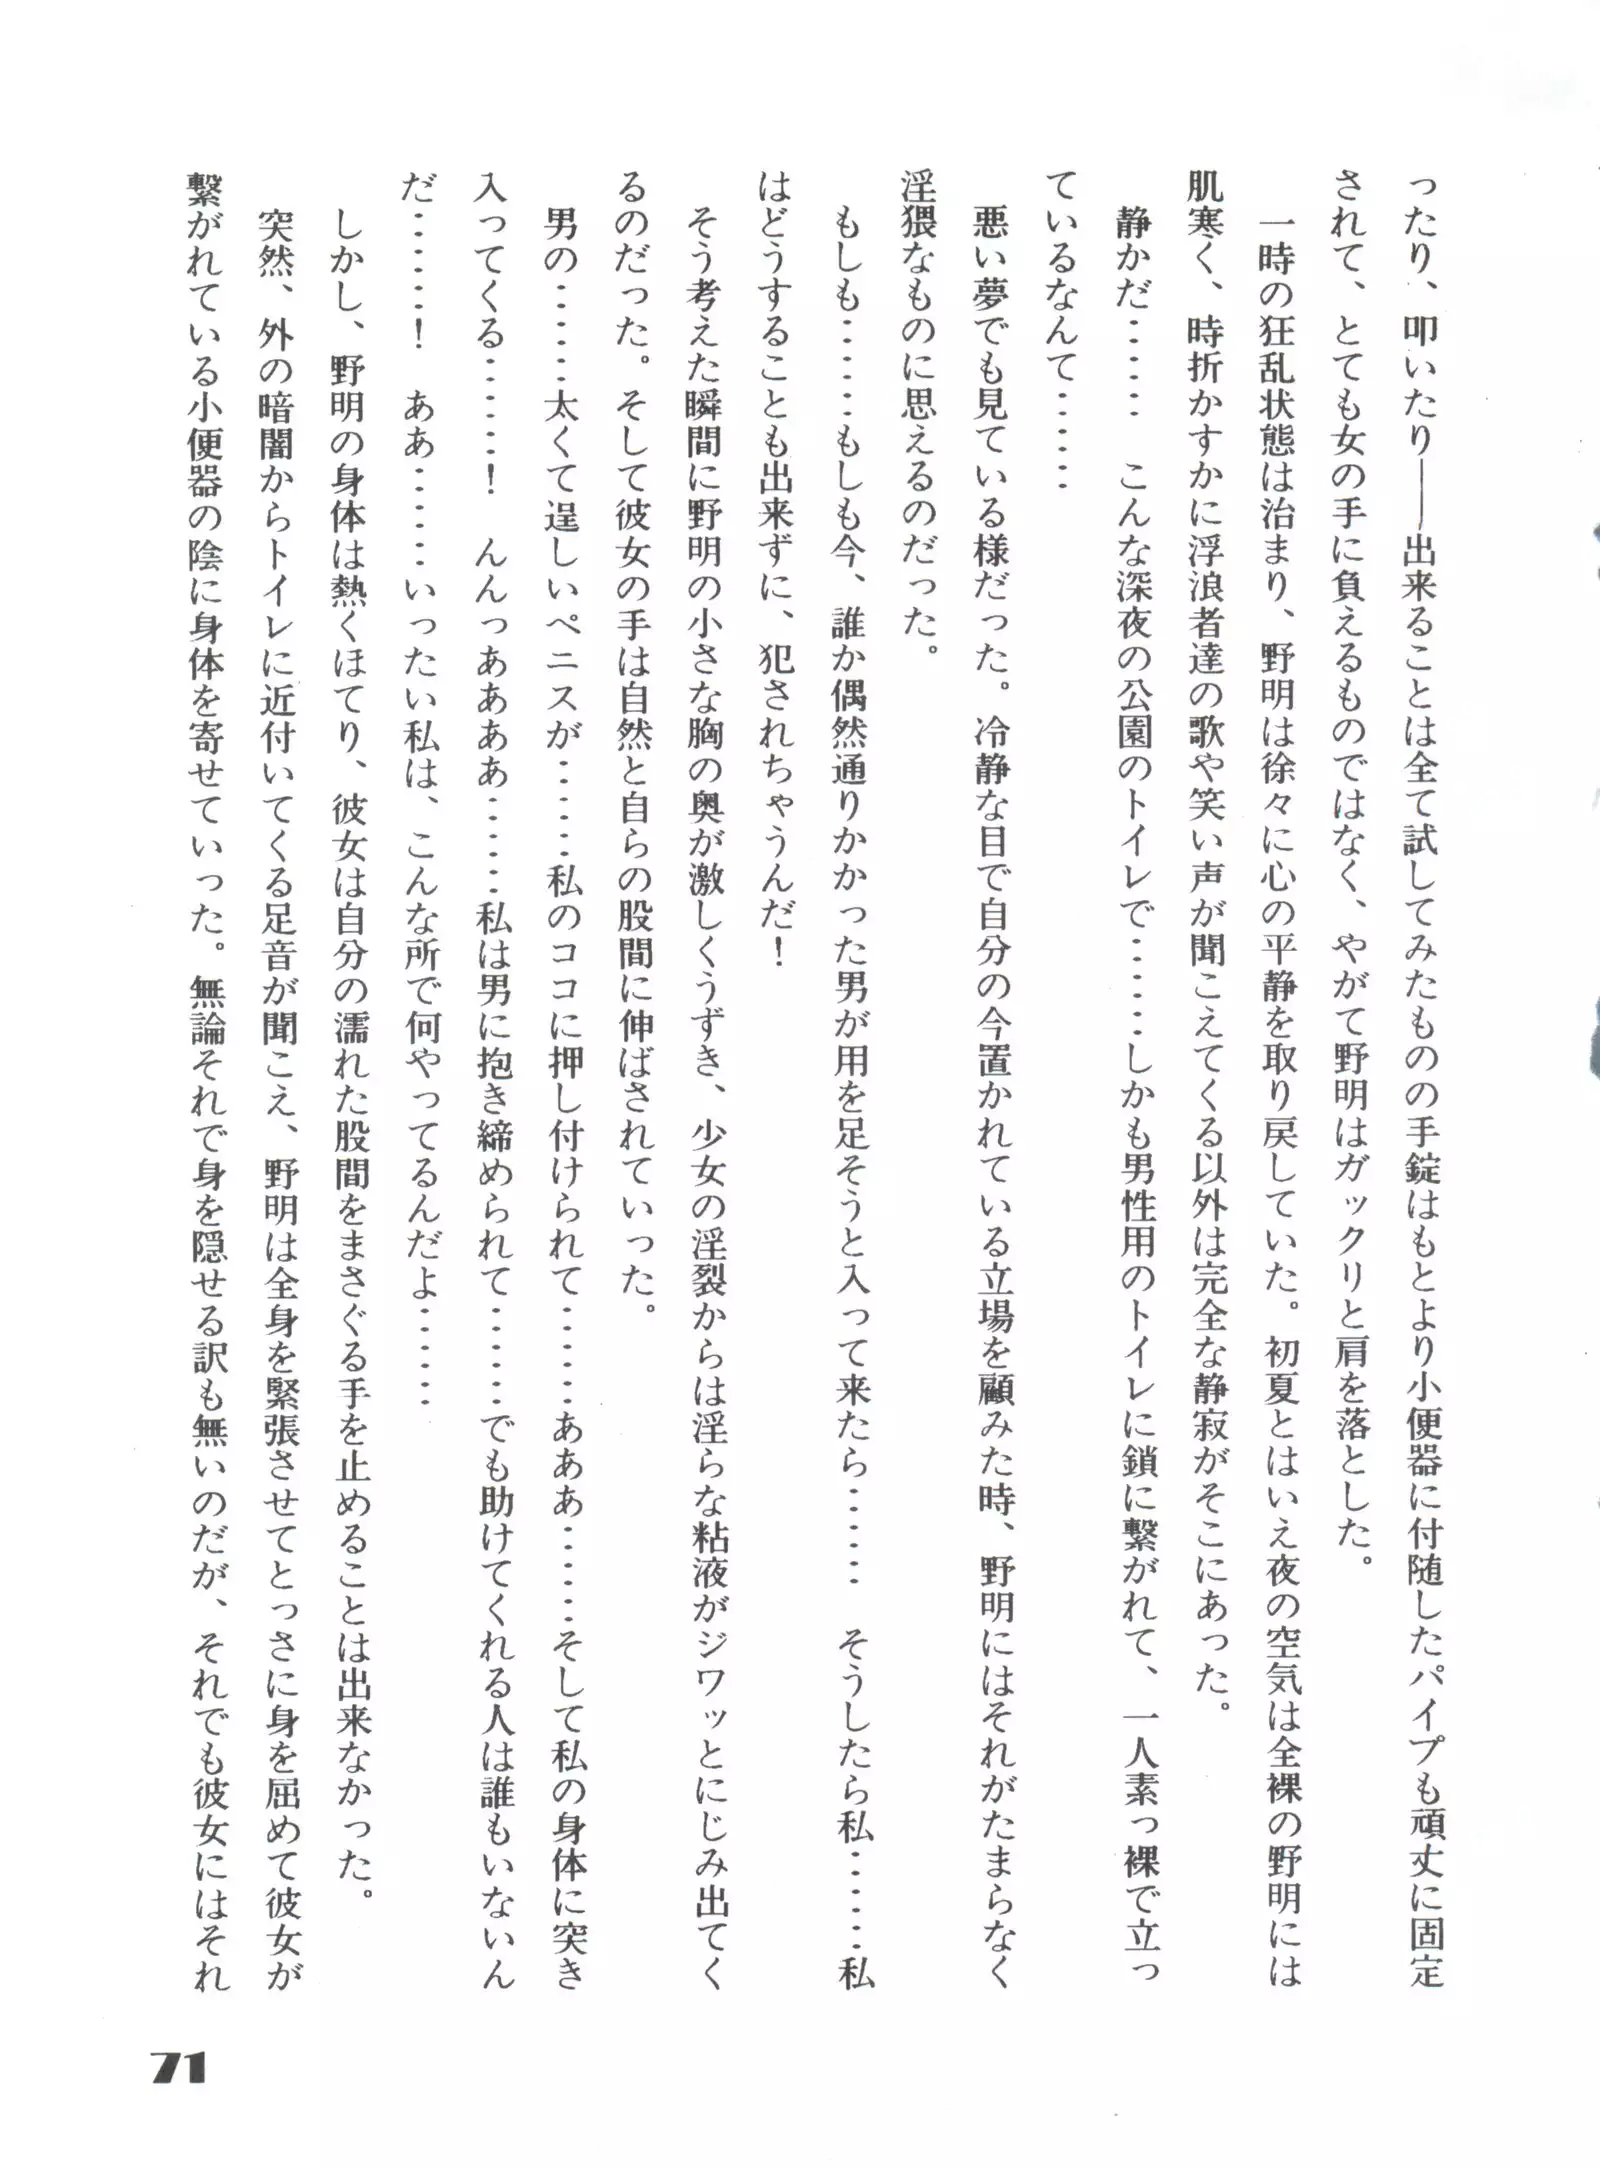 ったり、叩いたり――出来ることは全て試してみたものの手錠はもとより小便器に付随したパイプも頑丈に固定
されて、とても女の手に負えるものではなく、やがて野明はガックリと肩を落とした。
一時の狂乱状態は治まり、野明は徐々に心の平静を取り戻していた。初夏とはいえ夜の空気は全裸の野明には
肌寒く、時折かすかに浮浪者達の歌や笑い声が聞こえてくる以外は完全な静寂がそこにあった。
静かだ……　こんな深夜の公園のトイレで……しかも男性用のトイレに鎖に繋がれて、一人素っ裸で立っ
ているなんて……
悪い夢でも見ている様だった。冷静な目で自分の今置かれている立場を顧みた時、野明にはそれがたまらなく
淫猥なものに思えるのだった。
もしも……もしも今、誰か偶然通りかかった男が用を足そうと入って来たら……　そうしたら私……私
はどうすることも出来ずに、犯されちゃうんだ！
そう考えた瞬間に野明の小さな胸の奥が激しくうずき、少女の淫裂からは淫らな粘液がジワッとにじみ出てく
るのだった。そして彼女の手は自然と自らの股間に伸ばされていった。
男の……太くて逞しいペニスが……私のココに押し付けられて……あああ……そして私の身体に突き
入ってくる……！　んんっあああぁ……私は男に抱き締められて……でも助けてくれる人は誰もいないん
だ……！　ああ……いったい私は、こんな所で何やってるんだよ……
しかし、野明の身体は熱くほてり、彼女は自分の濡れた股間をまさぐる手を止めることは出来なかった。
突然、外の暗闇からトイレに近付いてくる足音が聞こえ、野明は全身を緊張させてとっさに身を屈めて彼女が
繋がれている小便器の陰に身体を寄せていった。無論それで身を隠せる訳も無いのだが、それでも彼女にはそれ
71